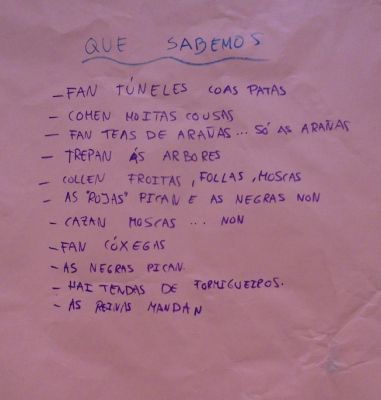 QUE SABEMOS
- FAN TÚNELES COAS PATAS
- COMEN MOITAS COUSAS
- FAN TEAS DE ARAÑAS... SÓ AS ARAÑAS
- TREPAN ÁS ARBORES
- COLLEN FROITAS, FOLLAS, MOSCAS
- AS "ROJAS" PICAN E AS NEGRAS NON
- CAZAN MOSCAS ... NON
- FAN CÓXEGAS
- AS NEGRAS PICAN.
- HAI TENDAS DE FORMIGUEIROS.
- AS REINAS MANDAN